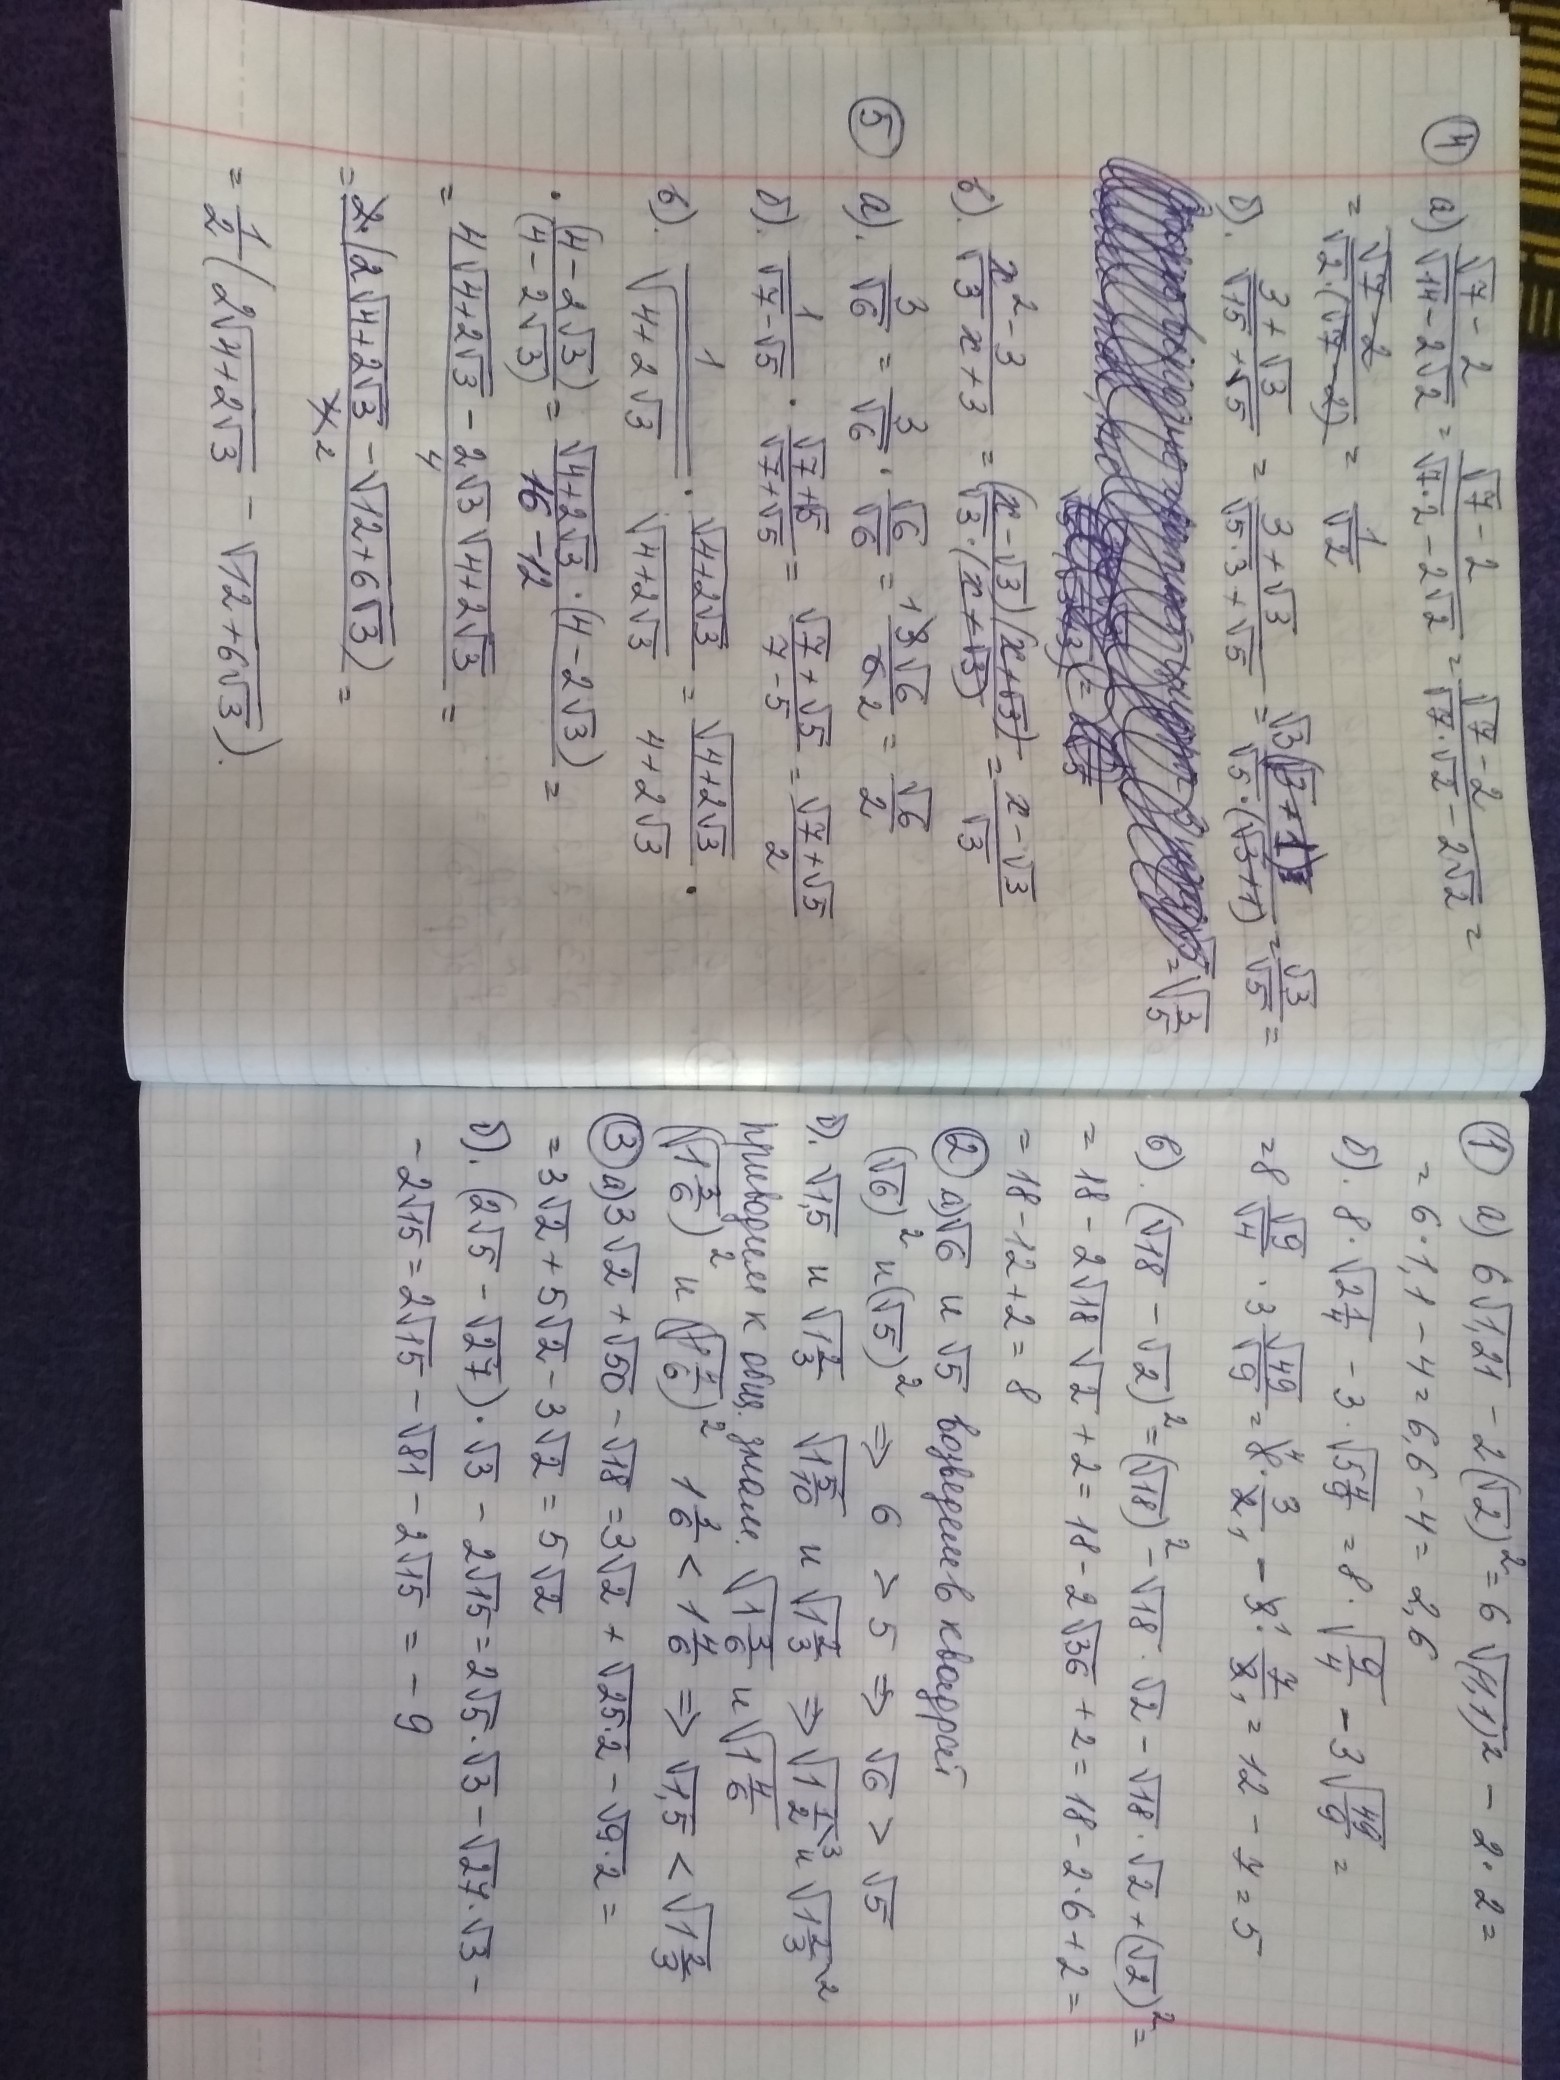 ④ а) (√7 - 2)/(√14 - 2√2) = (√7 - 2)/(√7·2 - 2√2) = (√7 - 2)/(√7·√2 - 2√2) =
= (√7 - 2)/(√2·(√7 - 2)) = 1/√2
б). (3 + √3)/(√15 + √5) = (3 + √3)/(√5·3 + √5) = √3(√3 + 1)/(√5·(√3 + 1)) = √3/√5 =
= √(3/5)
в). (x² - 3)/(√3 x + 3) = (x - √3)(x + √3)/(√3·(x + √3)) = (x - √3)/√3
⑤ а). 3/√6 = 3/√6 · √6/√6 = 1 3√6/6 2 = √6/2
б). 1/(√7 - √5) · (√7 + √5)/(√7 + √5) = (√7 + √5)/(7 - 5) = (√7 + √5)/2
в). 1/√(4 + 2√3) · √(4 + 2√3)/√(4 + 2√3) = √(4 + 2√3)/(4 + 2√3) ·
· (4 - 2√3)/(4 - 2√3) = √(4 + 2√3)·(4 - 2√3)/(16 - 12) =
= (4√(4 + 2√3) - 2√3 √(4 + 2√3))/4 =
= 2·(2√(4 + 2√3) - √(12 + 6√3))/4 2 =
= 1/2 (2√(4 + 2√3) - √(12 + 6√3)).
① а) 6√1,21 - 2(√2)² = 6√(1,1)² - 2·2 =
= 6·1,1 - 4 = 6,6 - 4 = 2,6
б). 8·√(2 1/4) - 3·√(5 4/9) = 8·√(9/4) - 3√(49/9) =
= 8 √9/√4 · 3 √49/√9 = 8 4 · 3/2 1 - 3 1 · 7/3 1 = 12 - 7 = 5
в). (√18 - √2)² = (√18)² - √18·√2 - √18·√2 + (√2)² =
= 18 - 2√18 √2 + 2 = 18 - 2√36 + 2 = 18 - 2·6 + 2 =
= 18 - 12 + 2 = 8
② а) √6 и √5 возведем в квадрат
(√6)² и (√5)² => 6 > 5 => √6 > √5
б). √1,5 и √(1 2/3) √(1 5/10) и √(1 2/3) => √(1 1/2) 3 и √(1 2/3) 2
приводим к общ. знам. √(1 3/6) и √(1 4/6)
(√(1 3/6))² и (√(1 4/6))² 1 3/6 < 1 4/6 => √1,5 < √(1 2/3)
③ а) 3√2 + √50 - √18 = 3√2 + √25·2 - √9·2 =
= 3√2 + 5√2 - 3√2 = 5√2
б). (2√5 - √27)·√3 - 2√15 = 2√5·√3 - √27·√3 -
- 2√15 = 2√15 - √81 - 2√15 = - 9